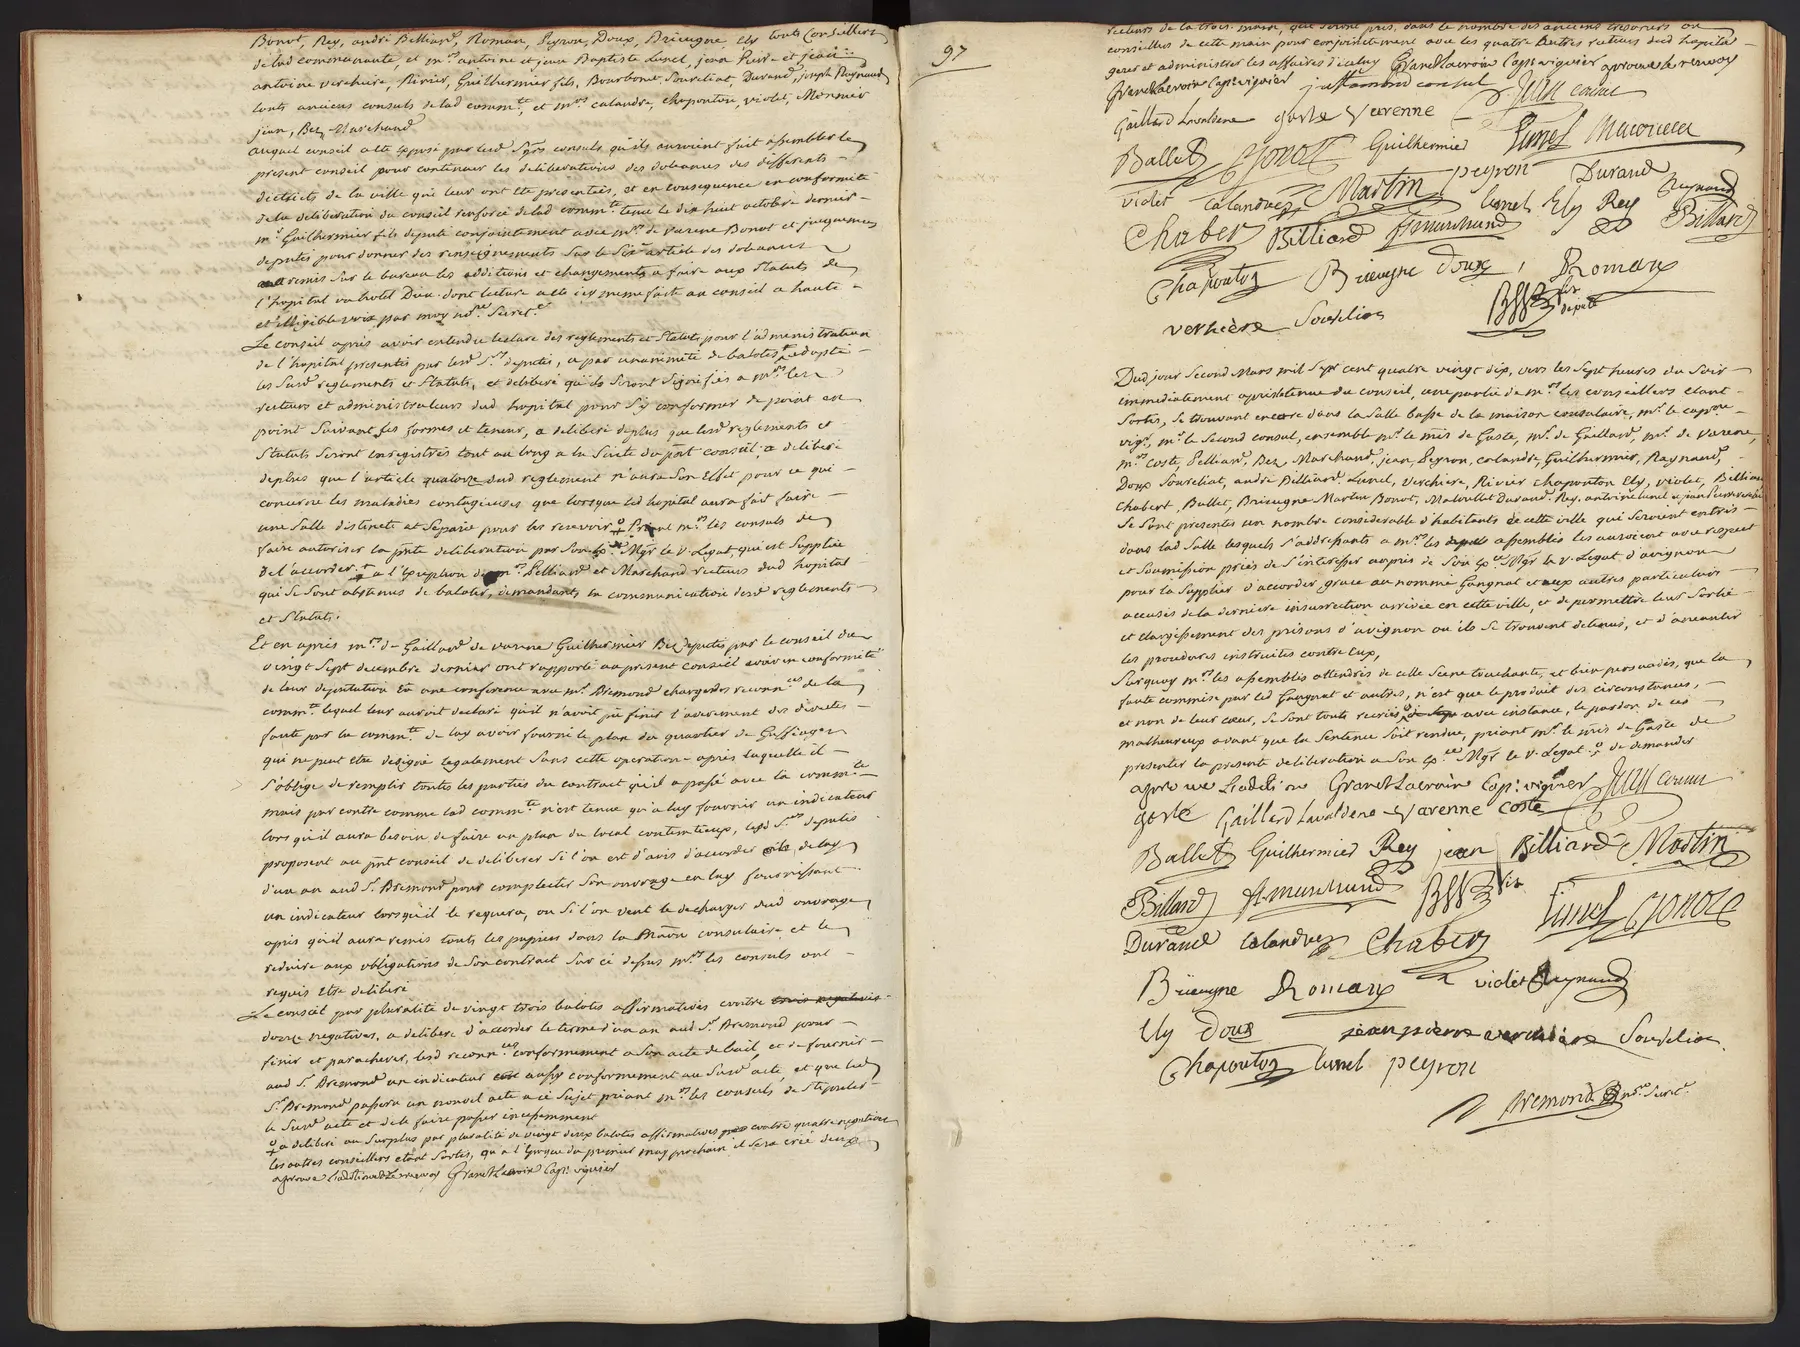 Bonot, Rey, andré Billiard, Roman, Peyron, Doux, Bricugne, Ely touts Conseillers
de lad communauté, et mrs antoine et jean Baptiste Lunel, jean Pierre et jean
antoine verchiere, Rivier, Guilhermier fils, Bourbone Soureliat, Durand, joseph Raynaud
touts anciens consuls de lad commte, et mrs calandre, chaponton, violet, Monnier
jean, Bez, Marchand
auquel conseil a été exposé par lesd Sgrs consuls qu'ils auroient fait assembler le
present conseil pour continuer les deliberations des doleances des differents
districts de la ville qui leur ont été presentées, et en consequence en conformité
de la deliberation du conseil renforcé de lad commte tenu le dix huit octobre dernier
mr Guilhermier fils deputé conjointement avec mrs de varene Bonot et jacquemes
deputés pour donner des renseignements sur le Sixe article des doleances
remis sur le bureau les additions et changements a faire aux statuts de
l'hopital ou hotel Dieu dont lecture a été icy meme faite au conseil a haute
et illigible voix par moy nore Secre
Le conseil après avoir entendu lecture des reglements et Statuts pour l'administration
de l'hopital presentés par lesd Srs deputés, a par unanimité de balotes + adopté
les Susd reglements et Statuts, et deliberé qu'ils seront signifiés a mrs les
recteurs et administrateurs dud hopital pour s'y conformer de point en
point suivant ses formes et teneur, a deliberé deplus que lesd reglements et
Statuts seront enregistrés tout au long a la suite du pnt conseil, a deliberé
deplus que l'article quatorze dud reglement n'aura son effet pour ce qui
concerne les maladies contagieuses que lorsque led hopital aura fait faire
une salle distincte et separée pour les recevoir Priant mrs les consuls de
faire autoriser la pnte deliberation par son Exce Mgr le v. Legat, qui est supplié
de l'accorder. + a l'exeption de mrs Pelliard et Marchand recteurs dud hopital
qui se sont abstenus de baloter, demandants la communication desd reglements
et statuts.
Et en après mrs de Gaillard de varene Guilhermier Bez deputés par le conseil du
vingt sept decembre dernier ont rapporté au present conseil avoir en conformité
de leur deputation eu une conference avec mr Bremond chargé des reconnces de la
commte lequel leur auroit declaré qu'il n'avoit pû finir l'averement des directes
faute par la commte de luy avoir fourni le plan du quartier de Goffinger
qui ne peut etre designé legalement sans cette operation après laquelle il
s'oblige de remplir toutes les parties du contract qu'il a passé avec la commte
mais par contre comme lad commte n'est tenue qu'a luy fournir un indicateur
lors qu'il aura besoin de faire un plan du local contentieux, lesd Srs deputés
proposent au pnt conseil de deliberer si l'on est d'avis d'accorder de lay
d'un an aud Sr Bremond pour completter son ouvrage en luy fournissant
un indicateur lorsqu'il le requera, ou si l'on veut le decharger dud ouvrage
après qu'il aura remis touts les papiers dans la maison consulaire et le
reduire aux obligations de son contract sur ci dessus mrs les consuls ont
requis etre deliberé
Le conseil par pluralité de vingt trois balotes affirmatives contre trois negatives
douze negatives, a deliberé d'accorder le terme d'un an aud Sr Bremond pour
finir et parachever lesd reconnces conformement a son acte de bail, et de fournir
aud Sr Bremond un indicateur aussy conformement au susd acte, et que led
Sr Bremond passera un nouvel acte a ce sujet priant mrs les consuls de stipuler
le susd acte et de le faire passer incessamment
a deliberé au surplus par pluralité de vingt deux balotes affirmatives contre quatre negatives
les autres conseillers etant sortis, qu'a l'Epoque du premier may prochain il sera créé deux
aprouvé l'additionetLe renvoy Grand Lacroix Capne viguier
97
recteurs de la trois. main, qui seront pris, dans le nombre des anciens tresoriers ou
conseillers de cette main pour conjointement avec les quatre autres recteurs dud hopital
gerer et administrer les affaires d'icelui Grand Lacroix Capne viguier aprouvé le renvoy
Grand Lacroix Capne viguier consul Jean consul
Gaillard Lavaldene gaste Varenne
Ballet Bonot Guilhermier Lunel
violet calandre Martin peyron Durand
Chabert Billiard amarchand Lunel Ely Rey Raynaud Billard
Chaponton Bricugne doux Roman
verchère Sourelias Bez deputé
Dud jour second Mars mil sept cent quatre vingt dix, vers les sept heures du soir
immediatement après la tenue du conseil, une partie de mrs les conseillers etant
sortis, se trouvant encore dans la salle basse de la maison consulaire, mr le capne
vigr, mr le second consul, ensemble mr le mis de Gaste, mr de Gaillard, mr de varene,
mrs coste, Pelliard, Bez, Marchand, jean, Peyron, calandre, Guilhermier, Raynaud,
Doux Soureliat, andré Billiard, Lunel, Verchiere, Rivier chaponton Ely, violet, Billiard
chabert, Ballet, Bricugne Martin Bonot, Durand, Rey, antoine lunel et jean pierre verchere
se sont presentés un nombre considerable d'habitants de cette ville qui seroient entrés
dans lad salle lesquels s'addressants a mrs les assemblés les auroient avec respect
et soumission priés de s'interesser auprès de son Exce Mgr le v. Legat d'avignon
pour la supplier d'accorder grace au nommé Gangnat et aux autres particuliers
accusés de la derniere insurrection arrivée en cette ville, et de permettre leur sortie
et elargissement des prisons d'avignon ou ils se trouvent detenus, et d'aneantir
les procedures instruites contre Eux,
Surquoy mrs les assemblés attendris de cette scene touchante, et bien persuadés, que la
faute commise par led Gangnat et autres, n'est que le produit des circonstances,
et non de leur cœur, se sont touts recriés avec instance, le pardon de ces
malheureux avant que la sentence soit rendue, priant mr le mis de Gaste de
presenter la presente deliberation a son Exce Mgr le v. Legat. de demander
aprouvé l'addition Grand Lacroix Capne viguier Jean consul
gaste Gaillard Lavaldene Varenne Coste
Ballet Guilhermier Rey jean Billiard Martin
Billard Amarchand Bez Lunel Bonot
Durand calandre Chabert
Bricugne Roman violet Reynaud
Ely doux jean pierre verchière Sourelias
Chaponton Lunel peyron
Bremond nore Secre